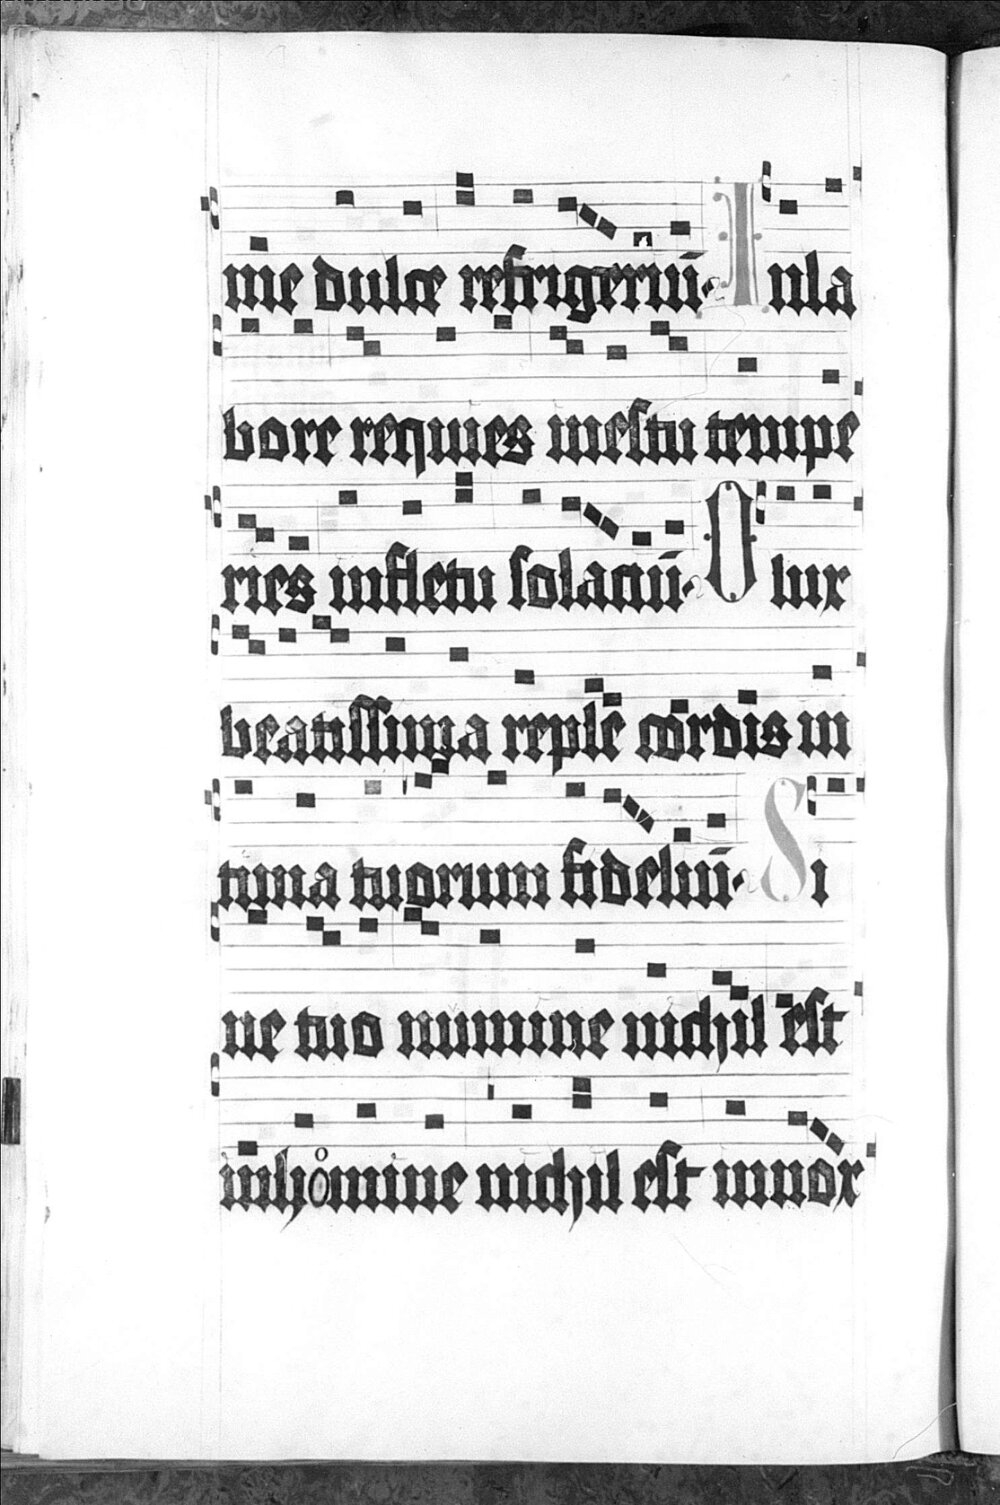 me dulce refrigeriū. Inla
bore requies inestu tempe
ries infletu solaciū. O lux
beatissima reple cordis in
tima tuorum fideliū. Si
ne tuo numine nichil est
inhomine nichil est innox